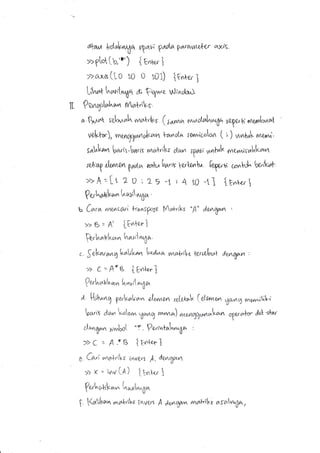 atau tidaknya spasi pada parameter axis.
>> plot(b,'*') {Enter}
>> axis([0 10 0 10]) {Enter}
Lihat hasilnya di Figure Window.
II. Pengolahan Matriks.
a. Buat sebuah matriks (sama mudahnya seperti membuat
vektor), menggunakan tanda semicolon (;) untuk memi-
sahkan baris-baris matriks dan spasi untuk memisahkan
setiap elemen pada satu baris tertentu. Seperti contoh berikut:
>> A = [1 2 0 ; 2 5 -1 ; 4 10 -1] {Enter}
Perhatikan hasilnya.
b. Cara mencari transpose Matriks "A" dengan :
>> B = A' {Enter}
Perhatikan hasilnya.
c. Sekarang kalikan kedua matriks tersebut dengan :
>> C = A * B {Enter}
Perhatikan hasilnya
d. Hitung perkalian elemen seletak (elemen yang memiliki
baris dan kolom yang sama) menggunakan operator dot-star
dengan simbol ".*". Perintahnya :
>> C = A .* B {Enter}
e. Cari matriks invers A, dengan
>> X = inv(A) {Enter}
Perhatikan hasilnya
f. Kalikan matriks invers A dengan matriks asalnya,